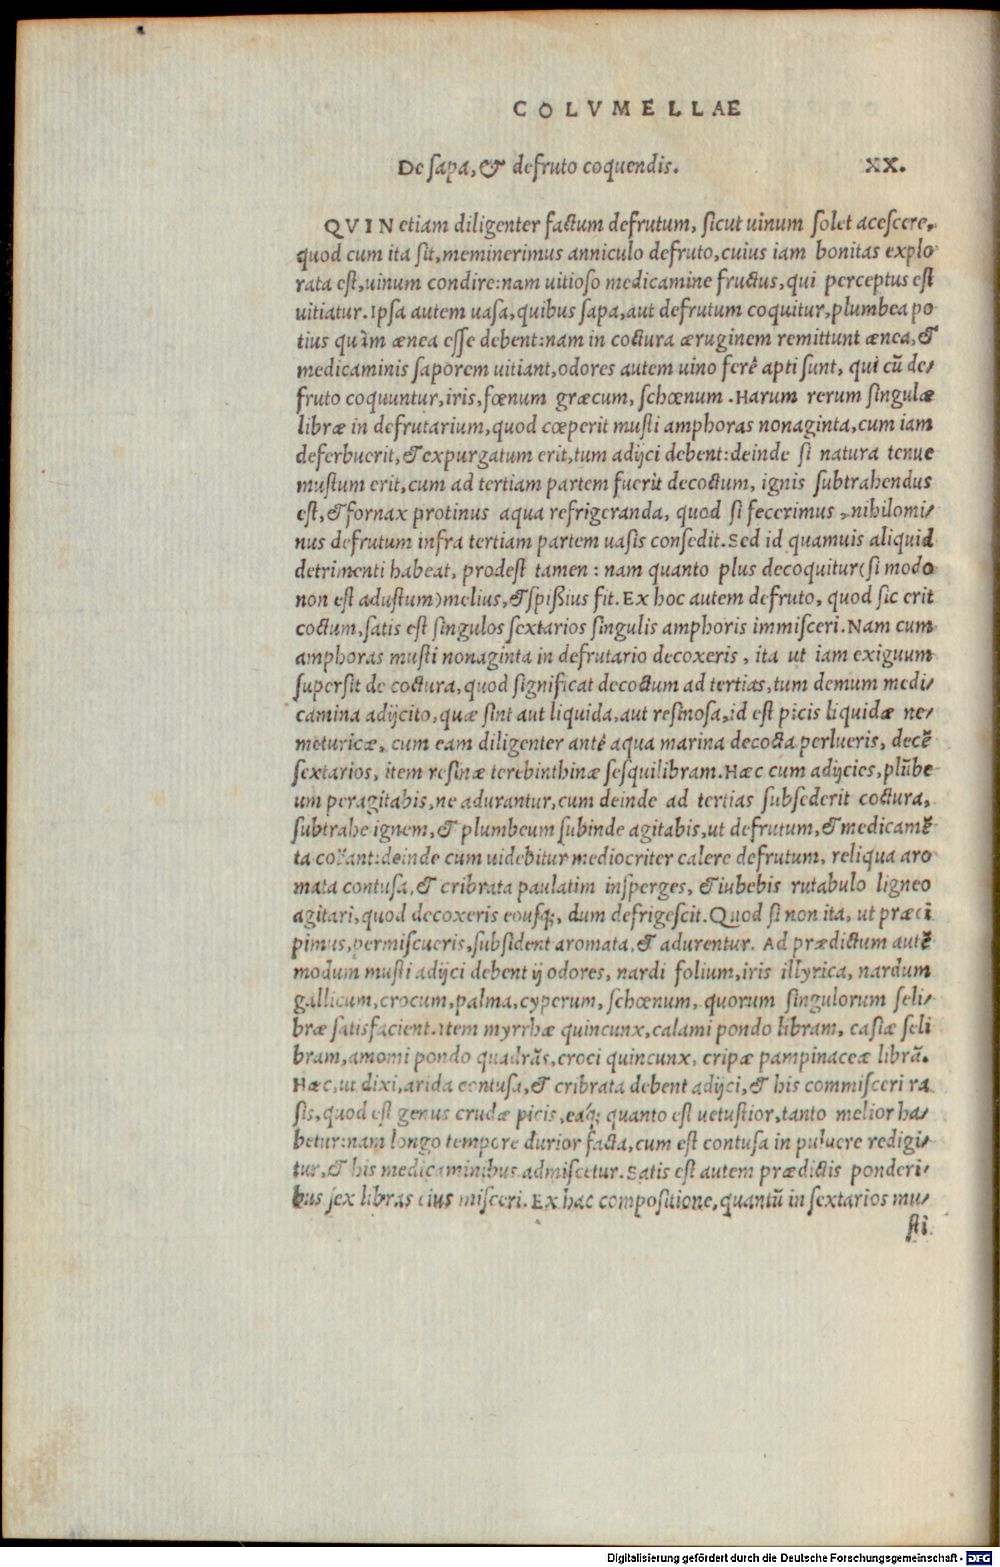 COLVMELLAE
De sapa, & defruto coquendis. XX.
QVIN etiam diligenter factum defrutum, sicut uinum solet acescere,
quod cum ita sit, meminerimus anniculo defruto, cuius iam bonitas explo
rata est, uinum condire: nam uitioso medicamine fructus, qui perceptus est
uitiatur. Ipsa autem uasa, quibus sapa, aut defrutum coquitur, plumbea po
tius quàm ænea esse debent: nam in coctura æruginem remittunt ænea, &
medicaminis saporem uitiant, odores autem uino ferè apti sunt, qui cũ de-
fruto coquuntur, iris, fœnum græcum, schœnum. Harum rerum singulæ
libræ in defrutarium, quod cœperit musti amphoras nonaginta, cum iam
deferbuerit, & expurgatum erit, tum adijci debent: deinde si natura tenue
mustum erit, cum ad tertiam partem fuerit decoctum, ignis subtrahendus
est, & fornax protinus aqua refrigeranda, quod si fecerimus, nihilomi-
nus defrutum infra tertiam partem uasis consedit. Sed id quamuis aliquid
detrimenti habeat, prodest tamen: nam quanto plus decoquitur (si modo
non est adustum) melius, & spißius fit. Ex hoc autem defruto, quod sic erit
coctum, satis est singulos sextarios singulis amphoris immisceri. Nam cum
amphoras musti nonaginta in defrutario decoxeris, ita ut iam exiguum
supersit de coctura, quod significat decoctum ad tertias, tum demum medi-
camina adijcito, quæ sint aut liquida, aut resinosa, id est picis liquidæ ne-
meturicæ, cum eam diligenter antè aqua marina decocta perlueris, decẽ
sextarios, item resinæ terebinthinæ sesquilibram. Hæc cum adijcies, plũbe
um peragitabis, ne adurantur, cum deinde ad tertias subsederit coctura,
subtrahe ignem, & plumbeum subinde agitabis, ut defrutum, & medicamẽ-
ta coeant: deinde cum uidebitur mediocriter calere defrutum, reliqua aro
mata contusa, & cribrata paulatim insperges, & iubebis rutabulo ligneo
agitari, quod decoxeris eousq;, dum defrigescit. Quod si non ita, ut præci
pimus, permiscueris, subsident aromata, & adurentur. Ad prædictum autẽ
modum musti adijci debent ij odores, nardi folium, iris illyrica, nardum
gallicum, crocum, palma, cyperum, schœnum, quorum singulorum seli-
bræ satisfacient. Item myrrhæ quincunx, calami pondo libram, casiæ seli
bram, amomi pondo quadrãs, croci quincunx, cripæ pampinaceæ librã.
Hæc, ut dixi, arida contusa, & cribrata debent adijci, & his commisceri ra
sis, quod est genus crudæ picis, eaq; quanto est uetustior, tanto melior ha-
betur: nam longo tempore durior facta, cum est contusa in puluere redigi-
tur, & his medicaminibus admiscetur. Satis est autem prædictis ponderi-
bus sex libras eius misceri. Ex hac compositione, quantũ in sextarios mu-
sti
Digitalisierung gefördert durch die Deutsche Forschungsgemeinschaft - DFG